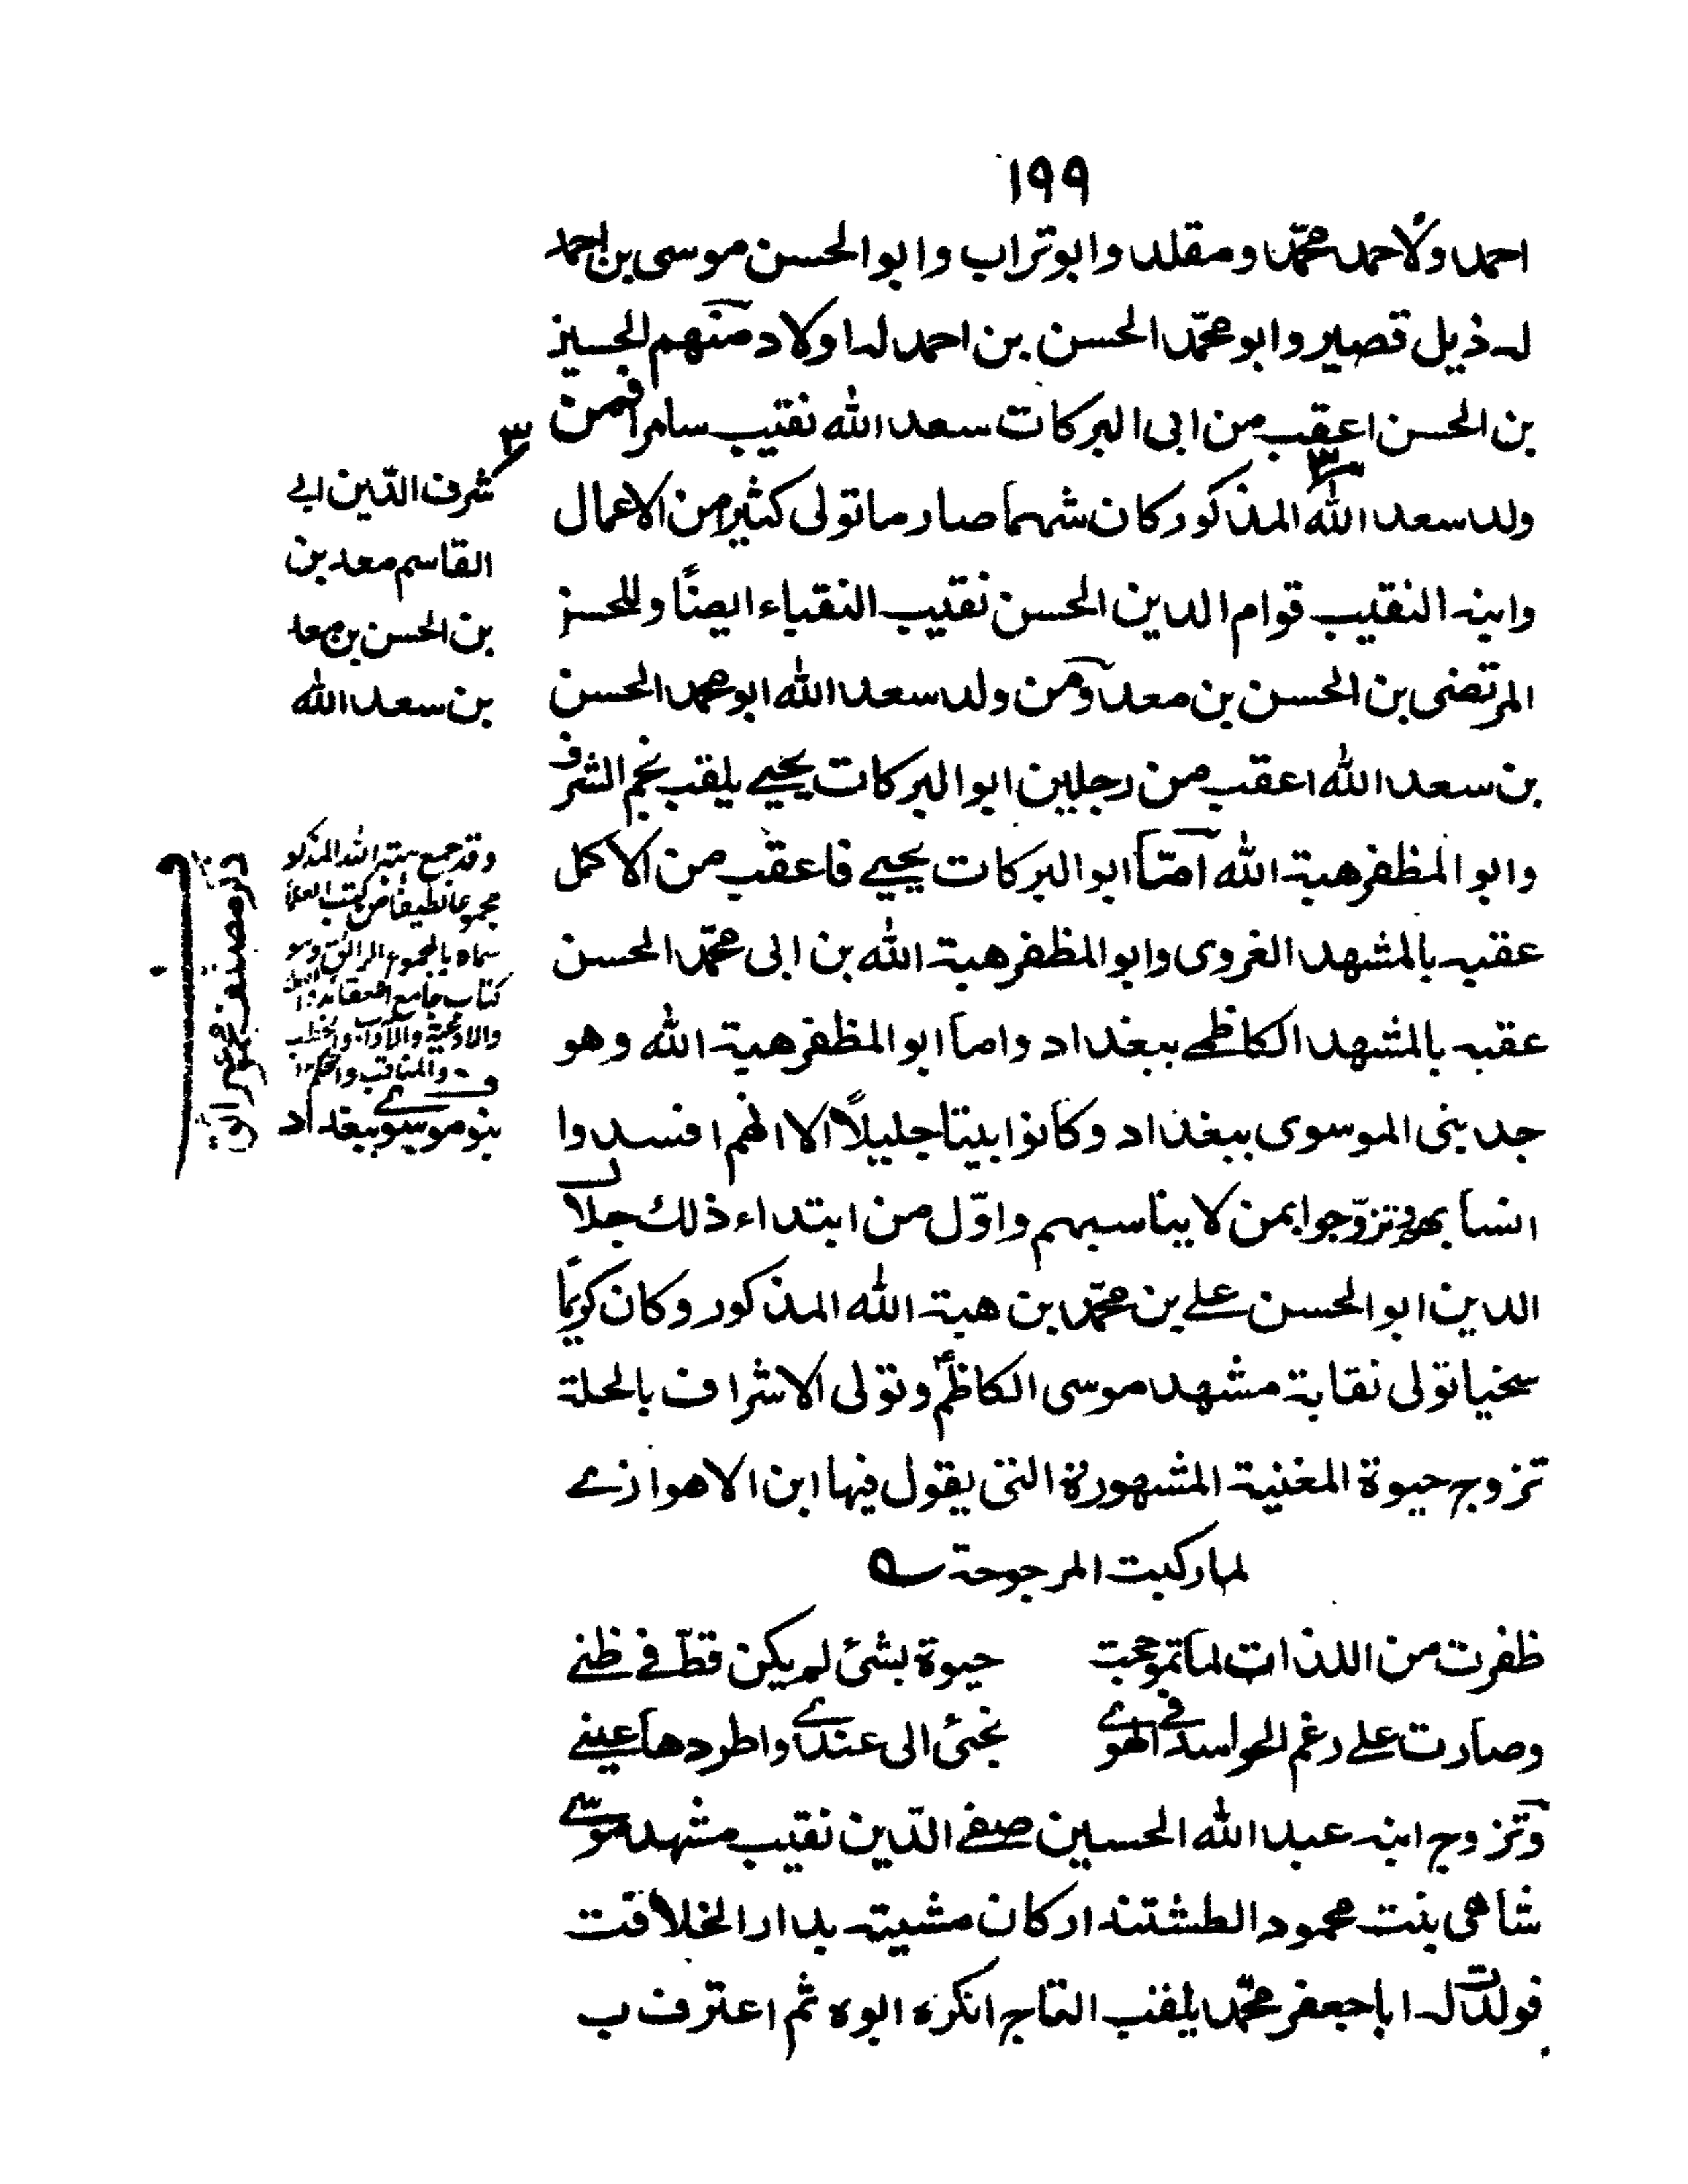 ١٩٩
احمد ولاحمد محمّد ومقلد وابوتراب وابوالحسن موسى بن احمد
له ذيل قصير وابو محمّد الحسن بن احمد له اولاد منهم الحسين
بن الحسن اعقب من ابى البركات سعد الله نقيب سامرا فمن
ولد سعد الله المذكور كان شهما صارما تولى كثير من الاعمال
وابنه النقيب قوام الدين الحسن نقيب النقباء ايضًا وللحسن
المرتضى بن الحسن بن معد ومن ولد سعد الله ابو محمد الحسن
بن سعد الله اعقب من رجلين ابو البركات يحيي يلقب نجم الشرف
وابو المظفر هبة الله امّا ابو البركات يحيي فاعقب من الاكمل
عقبه بالمشهد الغروى وابو المظفر هبة الله بن ابى محمّد الحسن
عقبه بالمشهد الكاظمي ببغداد واما ابو المظفر هبة الله وهو
جد بنى الموسوى ببغداد وكانوا بيتا جليلًا الا انهم افسدوا
انسابهم وتزوّجوا بمن لا يناسبهم واوّل من ابتداء ذلك جلال
الدين ابو الحسن علي بن محمّد بن هبة الله المذكور وكان كريمًا
سخيا تولى نقابة مشهد موسى الكاظم وتولى الاشراف بالحلة
تزوج حيوة المغنية المشهورة التى يقول فيها ابن الاهوازي
لما ركبت المرجوحة
ظفرت من اللذات لما تموجحت حيوة بشئ لم يكن قطّ في ظني
وصارت على رغم الحواسد في الهوى تجئ الى عندي واطردها عني
وتزوج ابنه عبد الله الحسين صفي الدّين نقيب مشهد موسى
شاهى بنت محمود الطشتندار كان مشيته بدار الخلافت
فولدت له ابا جعفر محمّد يلقب التاج انكره ابوه ثم اعترف ب
٣ شرف الدّين ابي
القاسم معد بن
بن الحسن بن معد
بن سعد الله
وقد جمع هبة الله المذكو
مجموعا لطيفا من كتب العلما
سماه بالمجموع الرائق وهو
كتاب جامع
والادعية والاداب والخطب
والمناقب والحكم
بنو موسوي ببغداد
ذكر مصنف مجموع الرائق